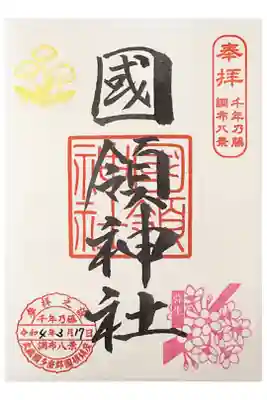 奉拝
千年乃藤
調布八景
國領神社
國領神社
弥生
参拝之証
千年乃藤
令和4年3月17日
調布八景